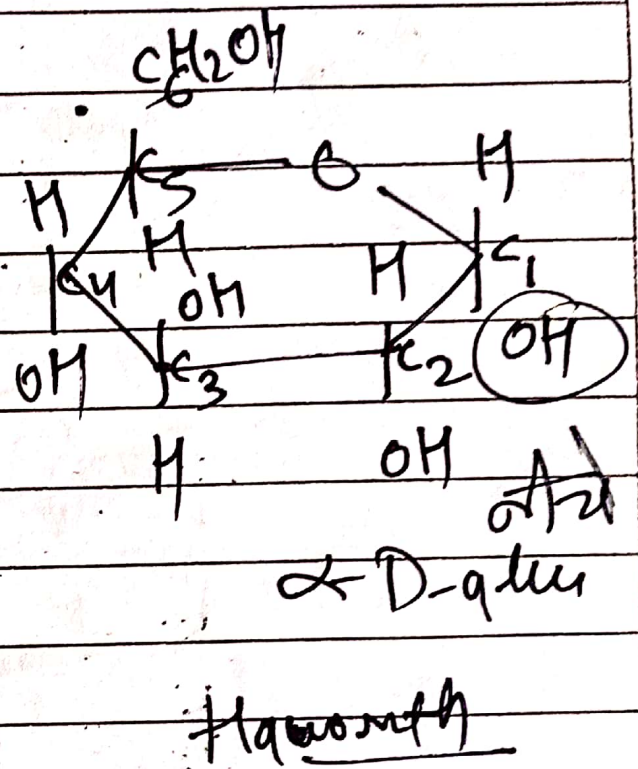 CH2OH
6
C5 O H
H H H C1
C4 OH OH
OH C3 C2
H OH
α-D-glu
Haworth